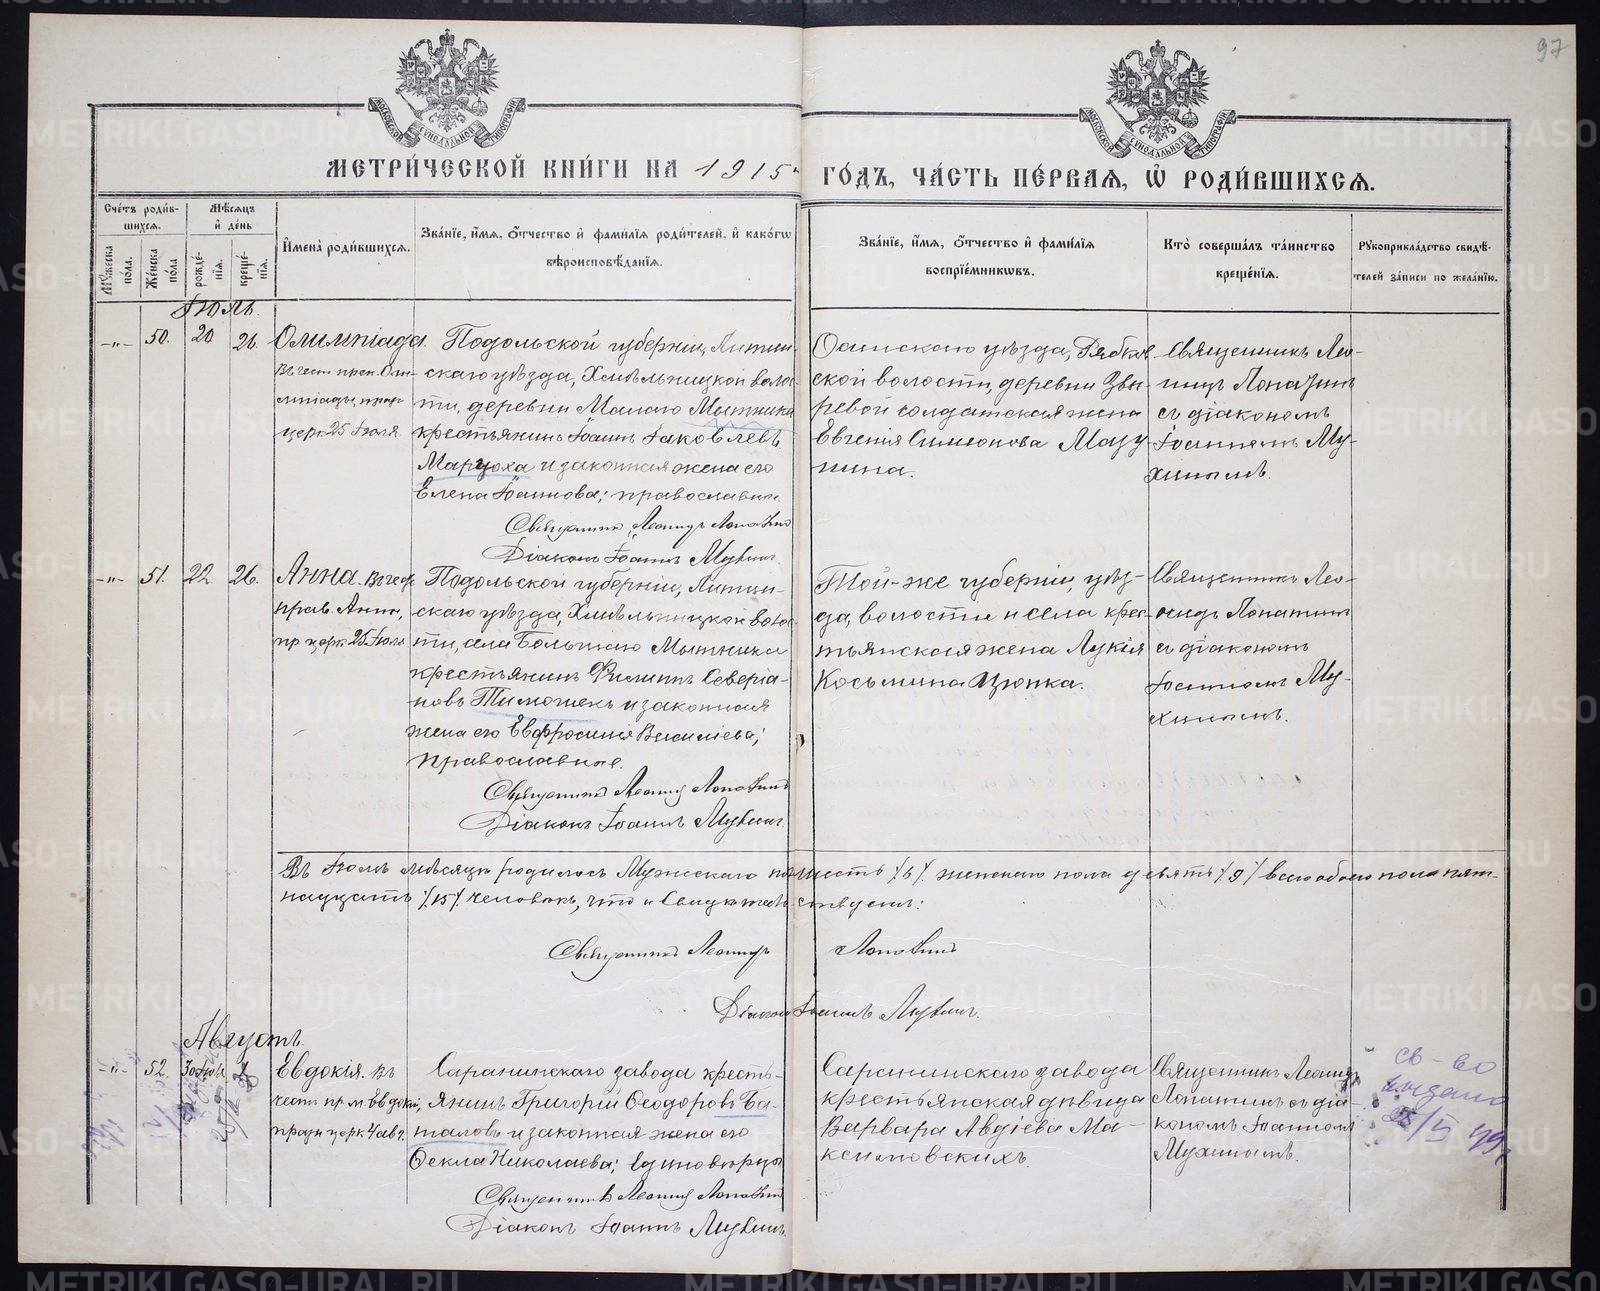 97
МЕТРИ́ЧЕСКОЙ КНИ́ГИ НА 1915 ГО́ДЪ, ЧА́СТЬ ПЕ́РВАЯ, Ѡ҆ РОДИ́ВШИХСѦ.
Сче́тъ роди́в-
шихсѧ.
Мѣ́сѧцъ
и҆ де́нь
Мꙋ́жеска
по́ла.
Же́нска
по́ла
рожде́-
нїѧ.
креще́-
нїѧ.
И҆мена̀ роди́вшихсѧ.
Зва́нїе, и҆́мѧ, ѻ҆́тчество и҆ фами́лїѧ роди́телей, и҆ како́гѡ
вѣроисповѣ́данїѧ.
Зва́нїе, и҆́мѧ, ѻ҆́тчество и҆ фами́лїѧ
воспрїе́мникѡвъ.
Кто̀ соверша́лъ та́инство
креще́нїѧ.
Рꙋкоприкла́дство свидѣ́-
телей за́писи по жела́нїю.
Іюль.
-„- 50. 20 26.
Олимпіада.
Въ чест. преп. Оли-
мпіады, праз.
церк. 25 Іюля
Подольской губерніи, Литин-
скаго уѣзда, Хмѣльницкой волос-
ти, деревни Малаго Мытника
крестьянинъ Іоаннъ Іаковлевъ
Марцоха и законная жена его
Елена Іоаннова; православные.
Священникъ Леонидъ Лопатинъ
Діаконъ Іоаннъ Мухинъ.
Осинскаго уѣзда, Рябков-
ской волости, деревни Звѣ-
ревой солдатская жена
Евгенія Симонова Мазу-
нина.
Священникъ Лео-
нидъ Лопатинъ
съ діакономъ
Іоанномъ Му-
хинымъ.
-„- 51. 22 26.
Анна. Въ чест.
прав. Анны,
пр. церк. 25 Іюля
Подольской губерніи, Литин-
скаго уѣзда, Хмѣльницкой волос-
ти, села Большаго Мытника
крестьянинъ Филиппъ Северіа-
новъ Тимошекъ и законная
жена его Евфросинія Василіева;
православные.
Священникъ Леонидъ Лопатинъ
Діаконъ Іоаннъ Мухинъ.
Той-же губерніи, уѣз-
да, волости и села крес-
тьянская жена Лукія
Косьмина Цюпка.
Священникъ Лео-
нидъ Лопатинъ
съ діакономъ
Іоанномъ Му-
хинымъ.
Въ Іюлѣ мѣсяцѣ родилось Мужескаго пола шесть /6/ женскаго пола девять /9/ всего обоего пола пят-
надцать /15/ человѣкъ, что и Свидѣтельствуемъ:
Священникъ Леонидъ Лопатинъ
Діаконъ Іоаннъ Мухинъ.
Августъ.
-„- 52. 30 Іюля 2
Евдокія. Въ
чест. пр. м. Евдокіи,
праздн. церк. 4 авг.
Саранинскаго завода кресть-
янинъ Григорій Ѳеодоровъ Ба-
таловъ и законная жена его
Ѳекла Николаева; единовѣрцы
Священникъ Леонидъ Лопатинъ
Діаконъ Іоаннъ Мухинъ.
Саранинскаго завода
крестьянская дѣвица
Варвара Авдіева Ма-
ксимовскихъ.
Священникъ Леонидъ
Лопатинъ съ діа-
кономъ Іоанномъ
Мухинымъ.
св-во
выдано
METRIKI.GASO-URAL.RU